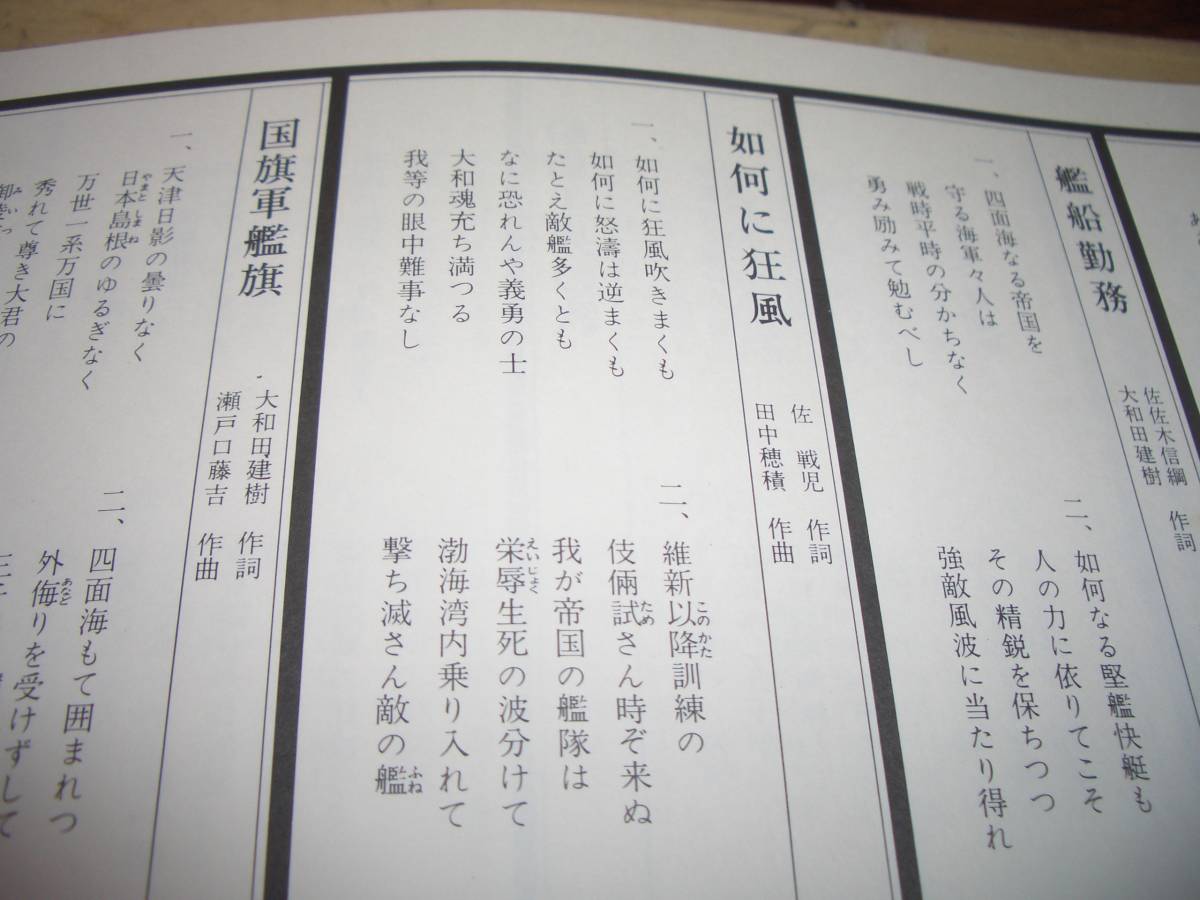 艦船勤務
佐佐木信綱
大和田建樹 作詞
一、四面海なる帝国を
守る海軍々人は
戦時平時の分かちなく
勇み励みて勉むべし
二、如何なる堅艦快艇も
人の力に依りてこそ
その精鋭を保ちつつ
強敵風波に当たり得れ
如何に狂風
佐 戦児 作詞
田中穂積 作曲
一、如何に狂風吹きまくも
如何に怒濤は逆まくも
たとえ敵艦多くとも
なに恐れんや義勇の士
大和魂充ち満つる
我等の眼中難事なし
二、維新以降訓練の
このかた
伎倆試さん時ぞ来ぬ
ため
我が帝国の艦隊は
栄辱生死の波分けて
えいじょく
渤海湾内乗り入れて
撃ち滅さん敵の艦
ふね
国旗軍艦旗
大和田建樹 作詞
瀬戸口藤吉 作曲
一、天津日影の曇りなく
日本島根のゆるぎなく
やまと しまね
万世一系万国に
秀れて尊き大君の
二、四面海もて囲まれつ
外侮りを受けずして
あなど